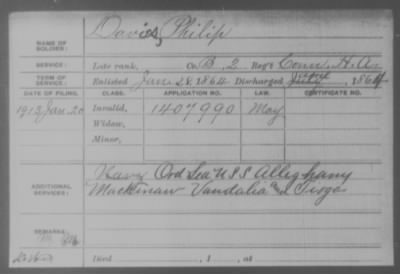 NAME OF SOLDIER: Davis, Philip
SERVICE: Late rank, Co. B, 2 Reg't Conn. H. A.
TERM OF SERVICE: Enlisted Jan. 28, 1864 Discharged June, 1864
DATE OF FILING. CLASS. APPLICATION NO. LAW. CERTIFICATE NO.
1913 Jan. 20 Invalid, 1407990 May
Widow,
Minor,
ADDITIONAL SERVICES: Navy Ord Sea U.S.S. Alleghany
Mackinaw Vandalia and Tioga
REMARKS:
Died , 1 , at